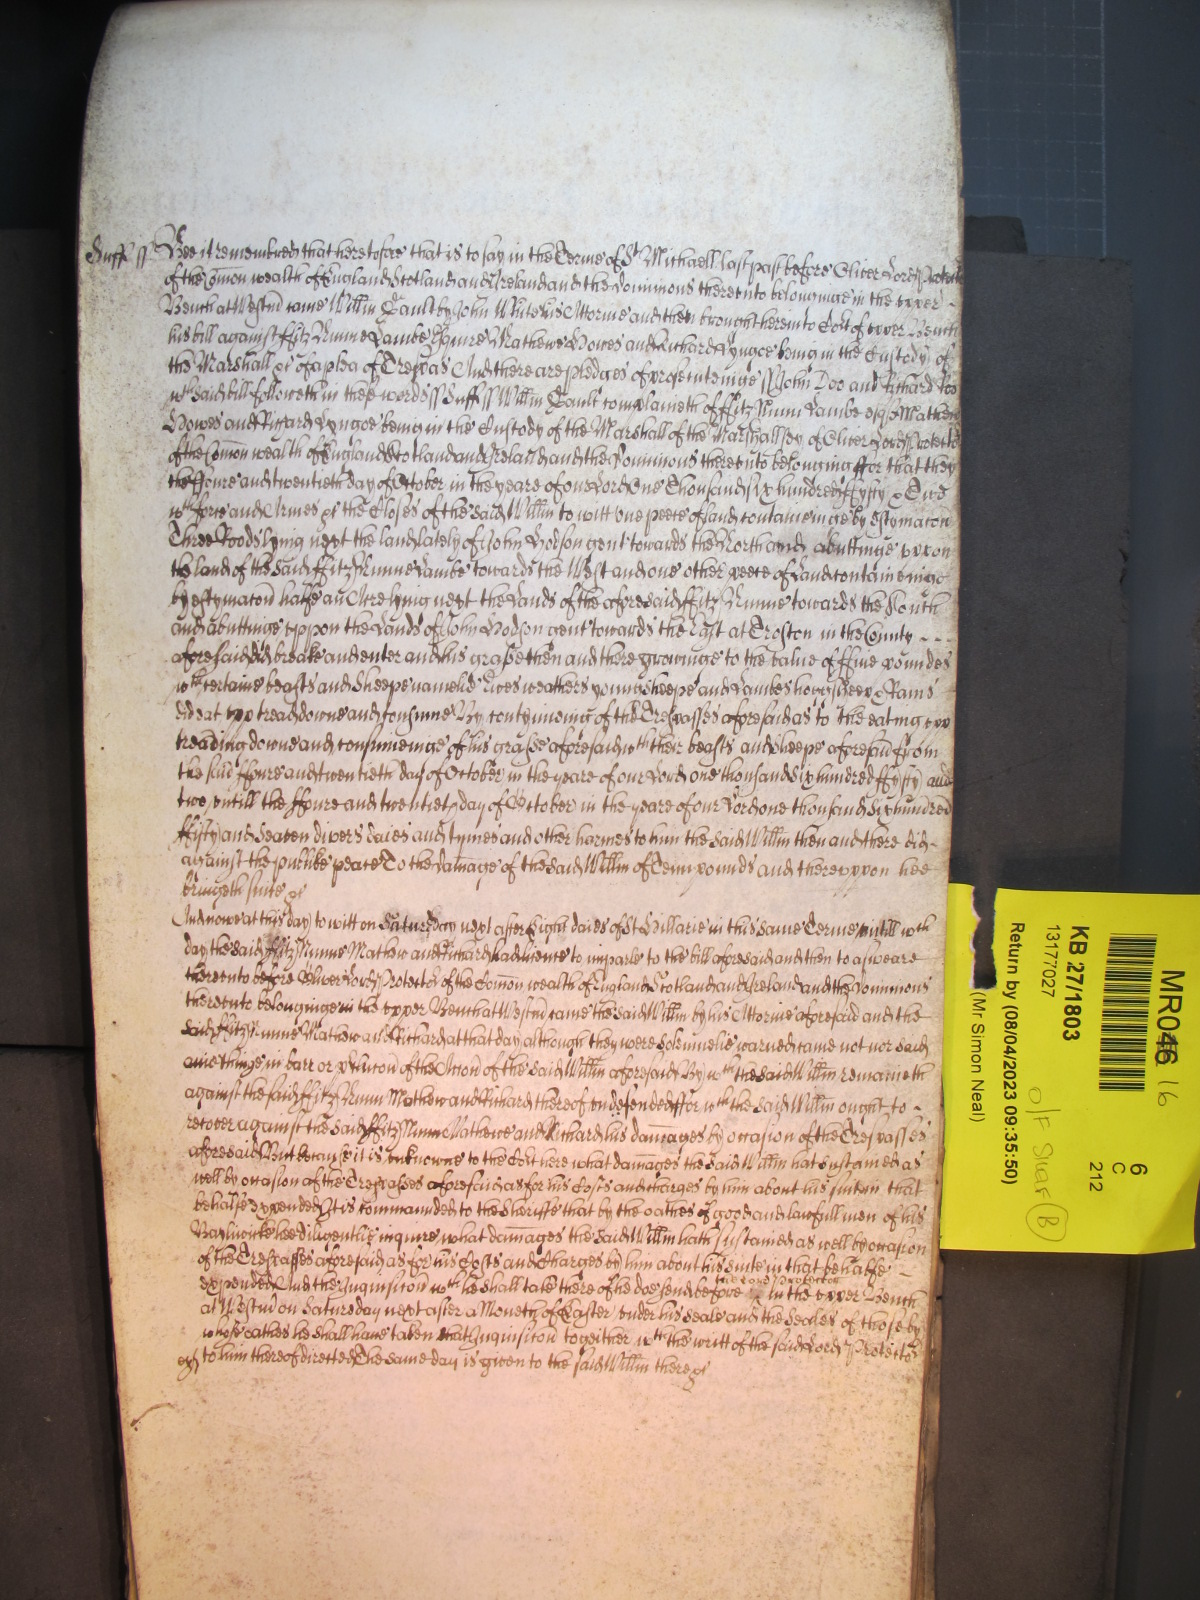 Suff ss Bee it remembred that heretofore that is to say in the Terme of St Michaell last past before Oliver Lord Protector
of the Comon wealth of England Scotland and Ireland and the Dominions thereunto belonginge in the upper
Bench at Westm came Willm Cault by John White his Attorne and then brought here into Cort of upper Bench
his bill against ffitz Nunne Lambe Esquire Mathewe Howes and Richard Lyngoe being in the Custody of
the Marshall &c of a plea of Trespas And there are pledges of prosecuteinge ss John Doo and Richard Roo
wch said bill followeth in these words ss Suff ss Willm Cault complaineth of ffitz Nunn Lambe esqr Mathew
Howes and Richard Lyngoe being in the Custody of the Marshall of the Marshallsey of Oliver Lord Protector
of the Comon wealth of England Scotland and Ireland and the Dominions thereunto belonging ffor that they
the ffoure and twentieth day of October in the yeare of our Lord One Thousand six hundred ffyfty & Two
wth force and Armes &c the Closes of the said Willm to witt one peece of land containeinge by estymacon
Three Roods lying next the land lately of John Hodson gent towards the North and abuttinge uppon
the land of the said ffitz Nunne Lambe towards the West and one other peece of Land containeinge
by estymacon halfe an Acre lying next the Lands of the aforesaid ffitz Nunne towards the South
and abuttinge uppon the Lands of John Hodson gent towards the East at Troston in the County
aforesaid did breake and enter and his grasse then and there groweinge to the value of ffive pounds
wth certaine beasts and sheepe namelie Ewes weathers young sheepe and Lambes hogg sheep & Rams
did eat upp tread downe and consume By contynueing of the Trespasses aforesaid as to the eating upp
treading downe and consumeinge of his grasse aforesaid wth their beasts and sheepe aforesaid from
the said ffoure and twentieth day of October in the yeare of our Lord one thousand six hundred ffyfty and
two untill the ffoure and twentieth day of October in the yeare of our Lord one thousand six hundred
ffifty and Seaven divers daies and tymes and other harmes to him the said Willm then and there did
against the publike peace To the damage of the said Willm of Tenn pounds and thereuppon hee
bringeth suite &c
And nowe at this day to witt on Saturday next after Eight daies of St Hillarie in this same Terme untill wch
day the said ffitz Nunne Mathew and Richard had licence to imparle to the bill aforesaid and then to answeare
thereunto before Oliver Lord Protector of the Comon wealth of England Scotland and Ireland and the Dominions
thereunto belonginge in the upper Bench at Westm came the said Willm by his Attorne aforesaid and the
said ffitz Nunne Mathew and Richard at that day although they were solemnelie warned came not nor said
anie thinge in barr or preclucon of the Accon of the said Willm aforesaid By wch the said Willm remaineth
against the said ffitz Nunn Mathew and Richard thereof undefended ffor wch the said Willm ought to
recover against the said ffitz Nunne Mathewe and Richard his damages by occasion of the Trespasses
aforesaid But because it is unknowne to the Cort here what damages the said Willm hath sustained as
well by occasion of the Trespasses aforesaid as for his Costs and charges by him about his suite in that
behalfe expended It is commaunded to the Sheriffe that by the oathes of good and lawfull men of his
Bayliwicke hee diligentlie inquire what damages the said Willm hath sustained as well by occasion
of the Trespasses aforesaid as for his Costs and Charges by him about his suite in that behalfe
expended And the Inquisicon wch he shall take thereof he doe send before the Lord Protector in the upper Bench
at Westm on Saturday next after a Moneth of Easter under his seale and the Seales of those by
whose oathes he shall have taken that Inquisicon togeither wth the writt of the said Lord Protector
to him thereof directed The same day is given to the said Willm there &c
MR046 16
6
C
212
KB 27/1803
13177027
Return by (08/04/2023 09:35:50)
(Mr Simon Neal)
O/F Shelf B